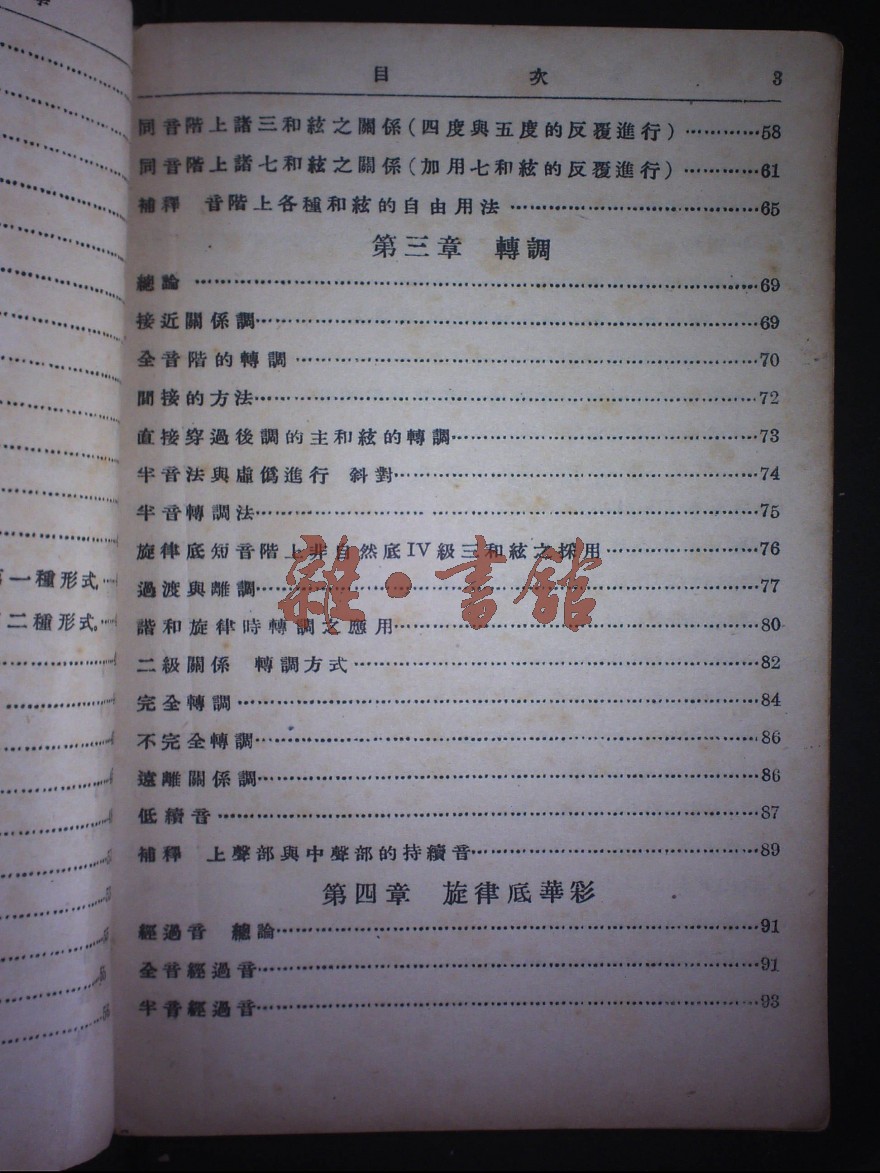 目 次 3
同音階上諸三和絃之關係(四度與五度的反覆進行)…………58
同音階上諸七和絃之關係(加用七和絃的反覆進行)…………61
補釋 音階上各種和絃的自由用法…………65
第三章 轉調
總論…………69
接近關係調…………69
全音階的轉調…………70
間接的方法…………72
直接穿過後調的主和絃的轉調…………73
半音法與虛僞進行 斜對…………74
半音轉調法…………75
旋律底短音階上非自然底IV級三和絃之採用…………76
過渡與離調…………77
諧和旋律時轉調之應用…………80
二級關係 轉調方式…………82
完全轉調…………84
不完全轉調…………86
遠離關係調…………86
低續音…………87
補釋 上聲部與中聲部的持續音…………89
第四章 旋律底華彩
經過音 總論…………91
全音經過音…………91
半音經過音…………93
一種形式
二種形式
雜·書館